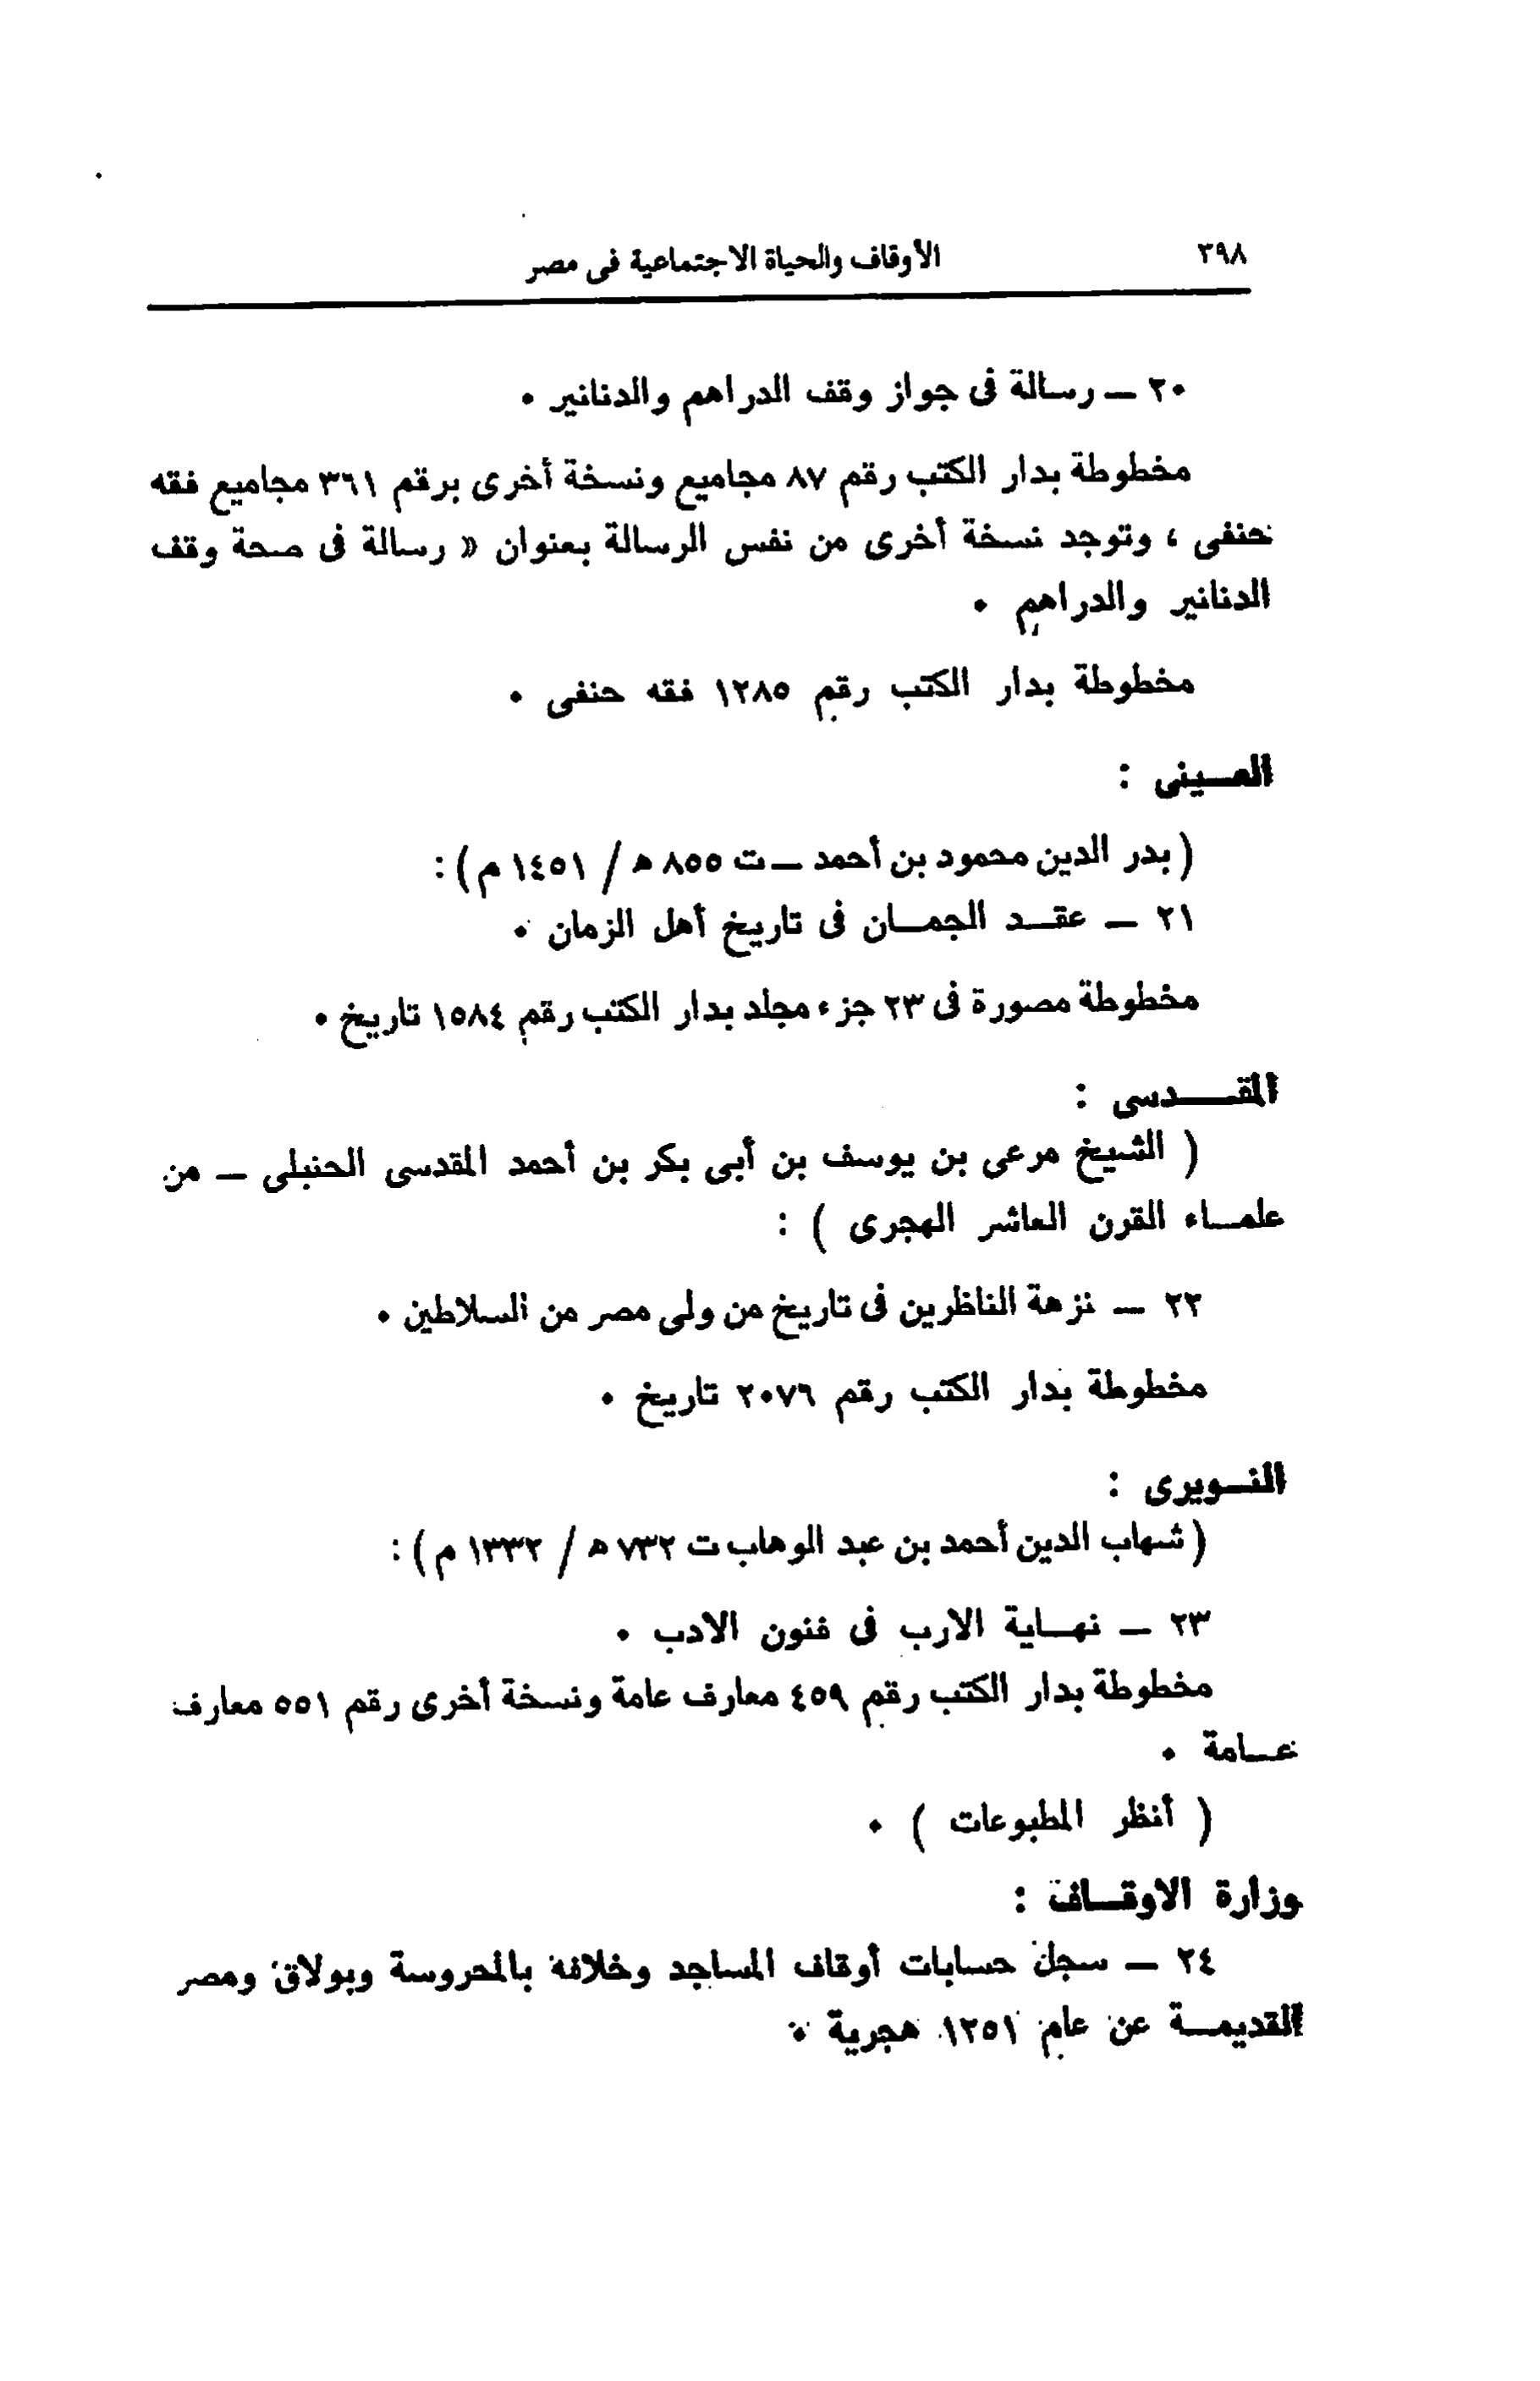 ٣٩٨
الأوقاف والحياة الاجتماعية فى مصر
٢٠ — رسالة فى جواز وقف الدراهم والدنانير ٠
مخطوطة بدار الكتب رقم ٨٧ مجاميع ونسخة أخرى برقم ٣٦١ مجاميع فقه
حنفى ، وتوجد نسخة أخرى من نفس الرسالة بعنوان « رسالة فى صحة وقف
الدنانير والدراهم ٠
مخطوطة بدار الكتب رقم ١٢٨٥ فقه حنفى ٠
العـــينى :
( بدر الدين محمود بن أحمد — ت ٨٥٥ هـ / ١٤٥١ م ) :
٢١ — عقـــد الجمـــان فى تاريخ أهل الزمان ٠
مخطوطة مصورة فى ٢٣ جزء مجلد بدار الكتب رقم ١٥٨٤ تاريخ ٠
المقـــــدسى :
( الشيخ مرعى بن يوسف بن أبى بكر بن أحمد المقدسى الحنبلى — من
علمـــاء القرن العاشر الهجرى ) :
٢٢ — نزهة الناظرين فى تاريخ من ولى مصر من السلاطين ٠
مخطوطة بدار الكتب رقم ٢٠٧٦ تاريخ ٠
النـــويرى :
( شهاب الدين أحمد بن عبد الوهاب ت ٧٣٢ هـ / ١٣٣٢ م ) :
٢٣ — نهـــاية الارب فى فنون الادب ٠
مخطوطة بدار الكتب رقم ٤٥٩ معارف عامة ونسخة أخرى رقم ٥٥١ معارف
عـــامة ٠
( أنظر المطبوعات ) ٠
وزارة الاوقـــاف :
٢٤ — سجل حسابات أوقاف المساجد وخلافه بالمحروسة وبولاق ومصر
القديمـــة عن عام ١٢٥١ هجرية ٠